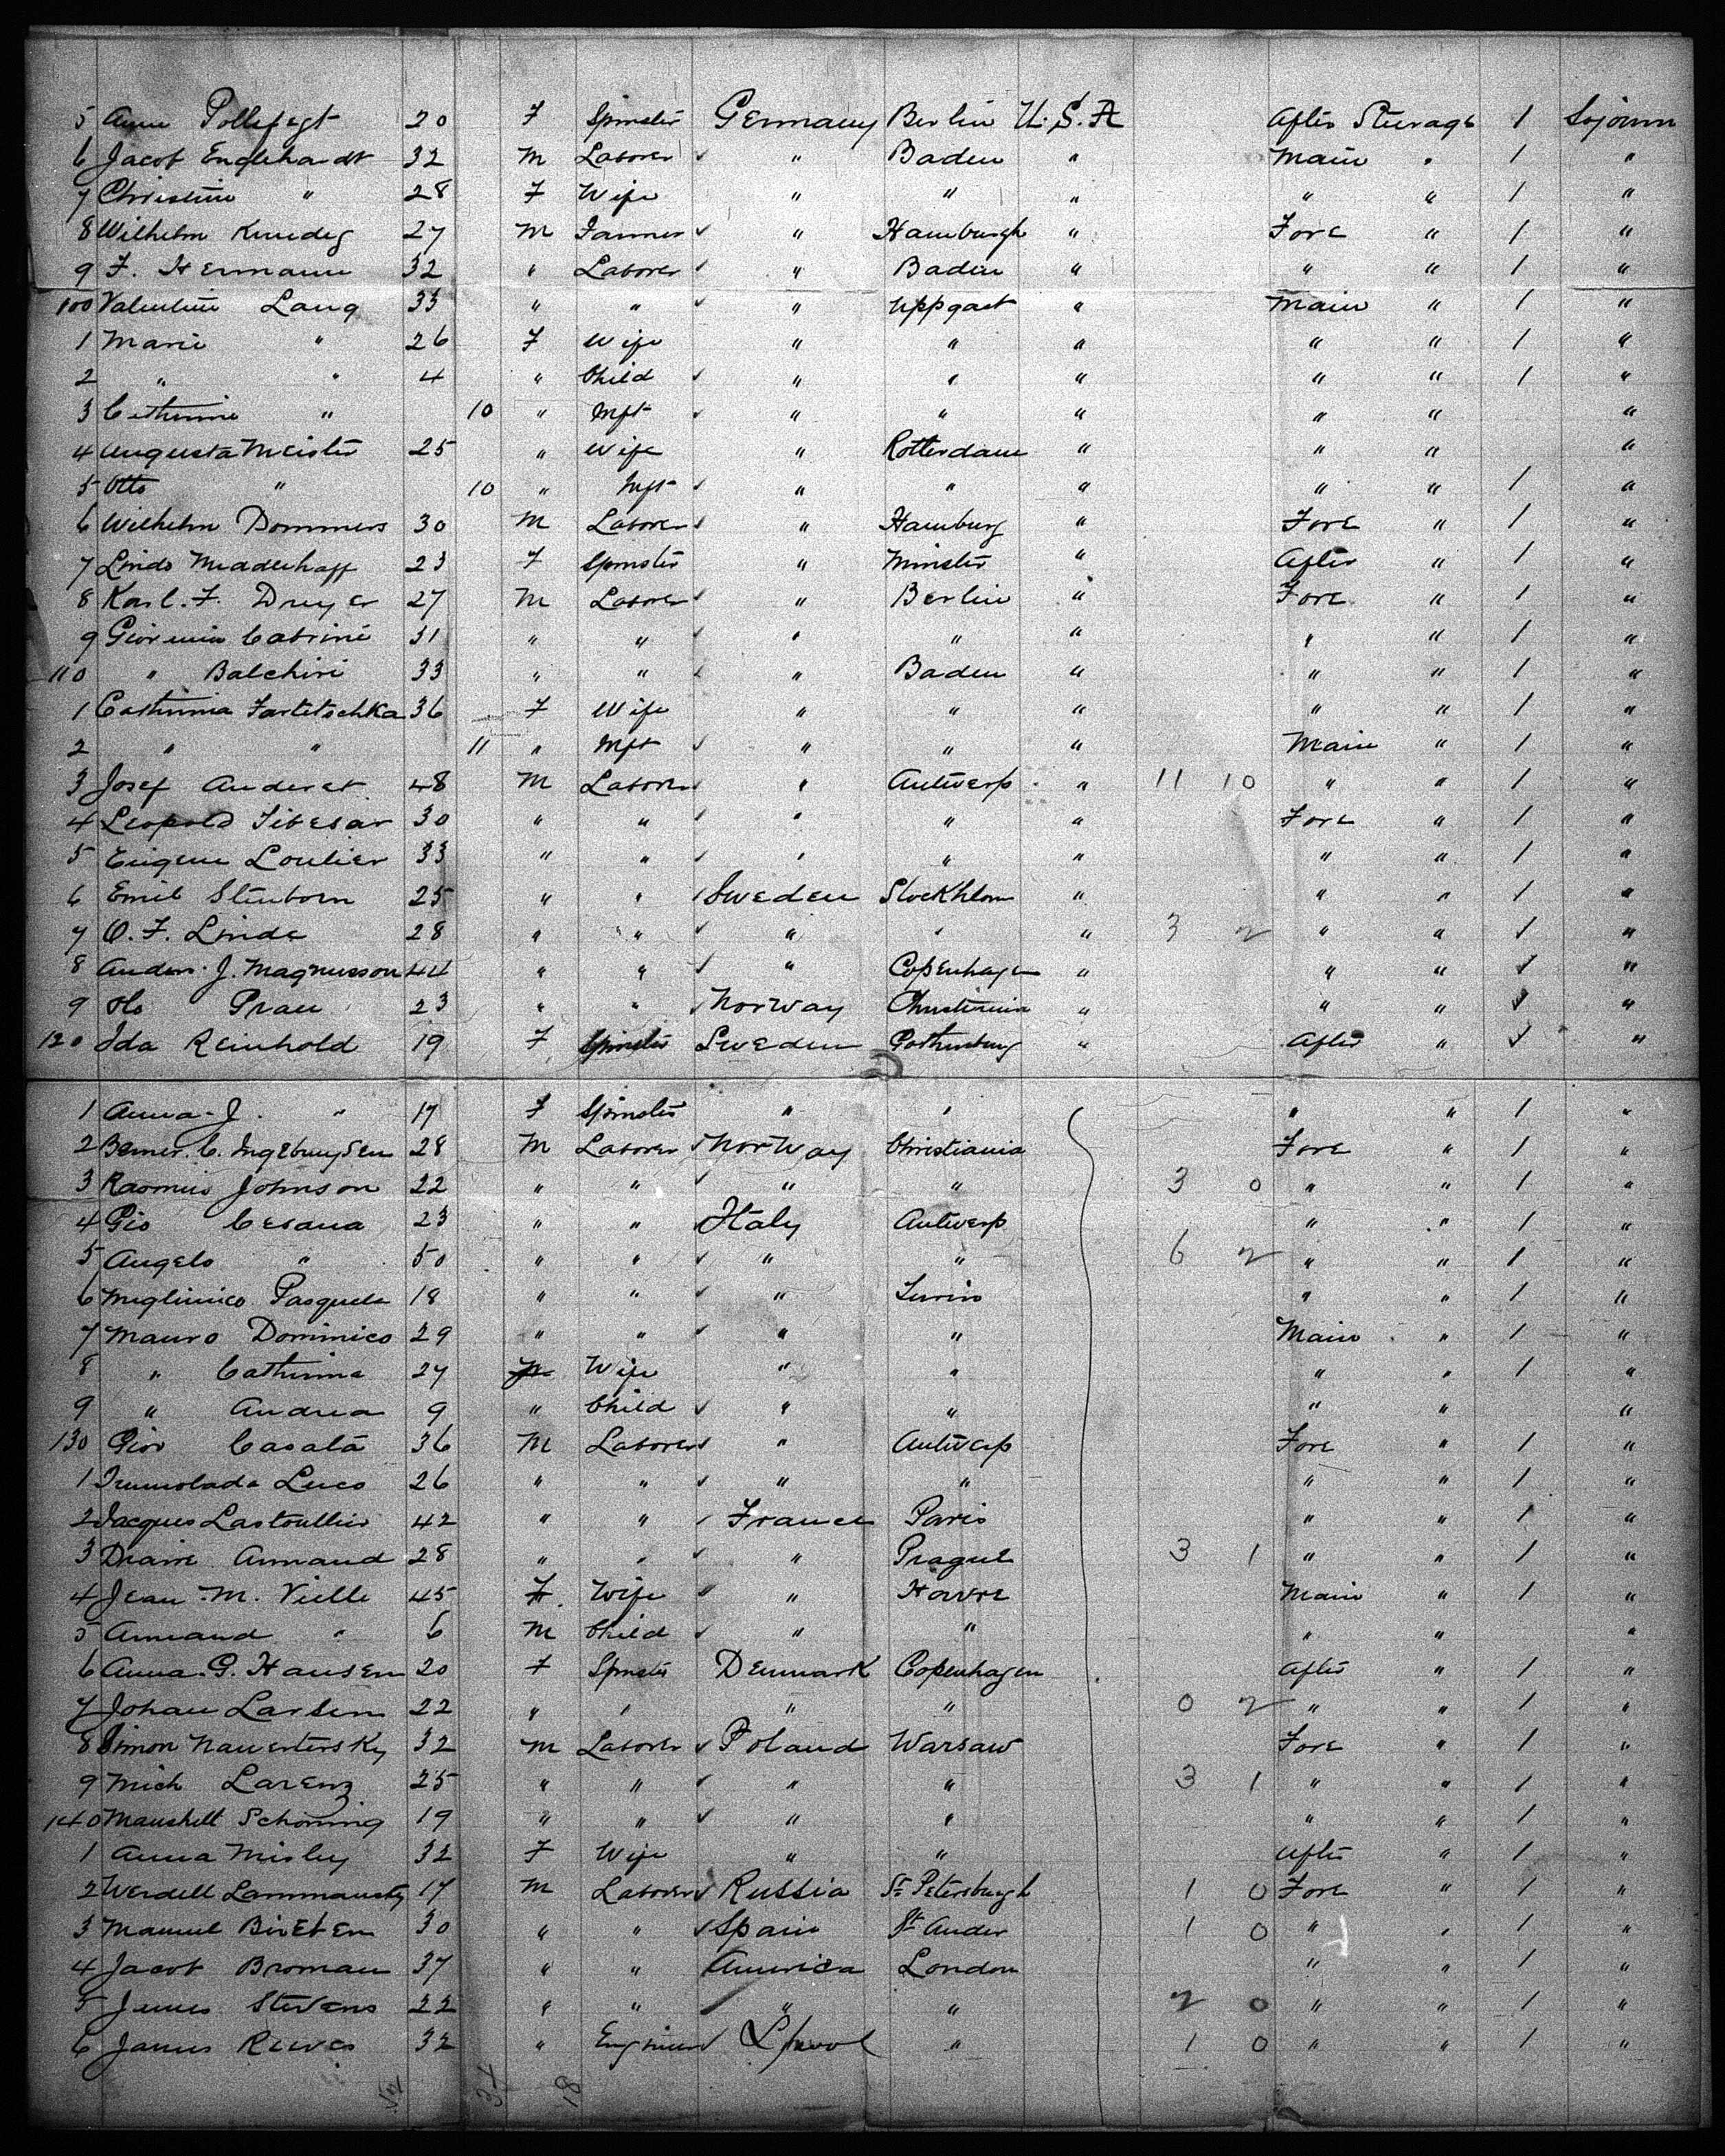 5 Anna Pollefegt 20 F Spinster Germany Berlin U.S.A After Steerage 1 Sojourn
6 Jacob Englehardt 32 M Laborer ✓ " Baden " Main " 1 "
7 Christine " 28 F Wife " " " " " 1 "
8 Wilhelm 27 M Farmer ✓ " Hamburgh " Fore " 1 "
9 F. Hermann 32 " Laborer ✓ " Baden " " " 1 "
100 Valentine Lang 33 " " ✓ " Uppgast " Main " 1 "
1 Marie " 26 F Wife " " " " " 1 "
2 " " 4 " Child ✓ " " " " " 1 "
3 Catherine " 10 " Inft ✓ " " " " " "
4 Augusta Meister 25 " Wife " Rotterdam " " " "
5 Otto " 10 " Inft ✓ " " " " " 1 "
6 Wilhelm Dommers 30 M Laborer ✓ " Hamburg " Fore " 1 "
7 Linds Middelhoff 23 F Spinster " Minster " After " 1 "
8 Karl. F. Dreyer 27 M Laborer ✓ " Berlin " Fore " 1 "
9 Cabrini 31 " " ✓ " " " " " 1 "
110 " Balchiri 33 " " ✓ " Baden " " " 1 "
1 Cathrinia Fartetschka 36 F Wife " " " " " 1 "
2 " " 11 " Inft ✓ " " " Main " 1 "
3 Josef Anderet 48 M Laborer ✓ " Antwerp " 11 10 " " 1 "
4 Leopold Tibesar 30 " " ✓ " " " Fore " 1 "
5 Eugene Loulier 33 " " ✓ " " " " " 1 "
6 Emil Stenborn 25 " " ✓ Sweden Stockhlom " " " 1 "
7 O. F. Linde 28 " " ✓ " " " 3 2 " " 1 "
8 Anders. J. Magnusson 44 " " ✓ " Copenhagen " " " 1 "
9 Olo Prau 23 " " ✓ Norway Christinia " " " 1 "
120 Ida Reinhold 19 F Spinster Sweden Gothenburg " After " 1 "
1 Anna. J. " 17 F Spinster " " " " 1 "
2 C. Ingebrugsen 28 M Laborer ✓ Norway Christiania Fore " 1 "
3 Rasmus Johnson 22 " " ✓ " " 3 0 " " 1 "
4 Gio Cesana 23 " " Italy Antwerp " " 1 "
5 Angelo " 50 " " ✓ " " 6 2 " " 1 "
6 Miglinico Pasquele 18 " " ✓ " Turin " " 1 "
7 Mauro Dominico 29 " " ✓ " " Main " 1 "
8 " Catherine 27 Wife " " " " 1 "
9 " Andrea 9 " Child ✓ " " " " "
130 Giov Casata 36 M Laborer ✓ " Antwerp Fore " 1 "
1 Luco 26 " " ✓ " " " " 1 "
2 Jacques Lastoullier 42 " " ✓ France Paris " " 1 "
3 Draire Armand 28 " " ✓ " Prague 3 1 " " 1 "
4 Jean. M. Vielle 45 F. Wife ✓ " Havre Main " 1 "
5 Armand " 6 M Child ✓ " " " " "
6 Anna. G. Hansen 20 F Spinster Denmark Copenhagen After " 1 "
7 Johan Larsen 22 " " " " 0 2 " " 1 "
8 Simon Nawertersky 32 M Laborer ✓ Poland Warsaw Fore " 1 "
9 Mich Larenz 25 " " ✓ " " 3 1 " " 1 "
140 Maushell Schoning 19 " " ✓ " " " " 1 "
1 Anna Misley 32 F Wife " " After " 1 "
2 Werdell 17 M Laborer ✓ Russia St. Petersburgh 1 0 Fore " 1 "
3 Manuel 30 " " ✓ Spain St Ander 1 0 " " 1 "
4 Jacob Broman 37 " " America London " " 1 "
5 James Stevens 22 " " " " 2 0 " " 1 "
6 James Reeves 32 " Engineer ✓ L'pool " 1 0 " " 1 "
34 18